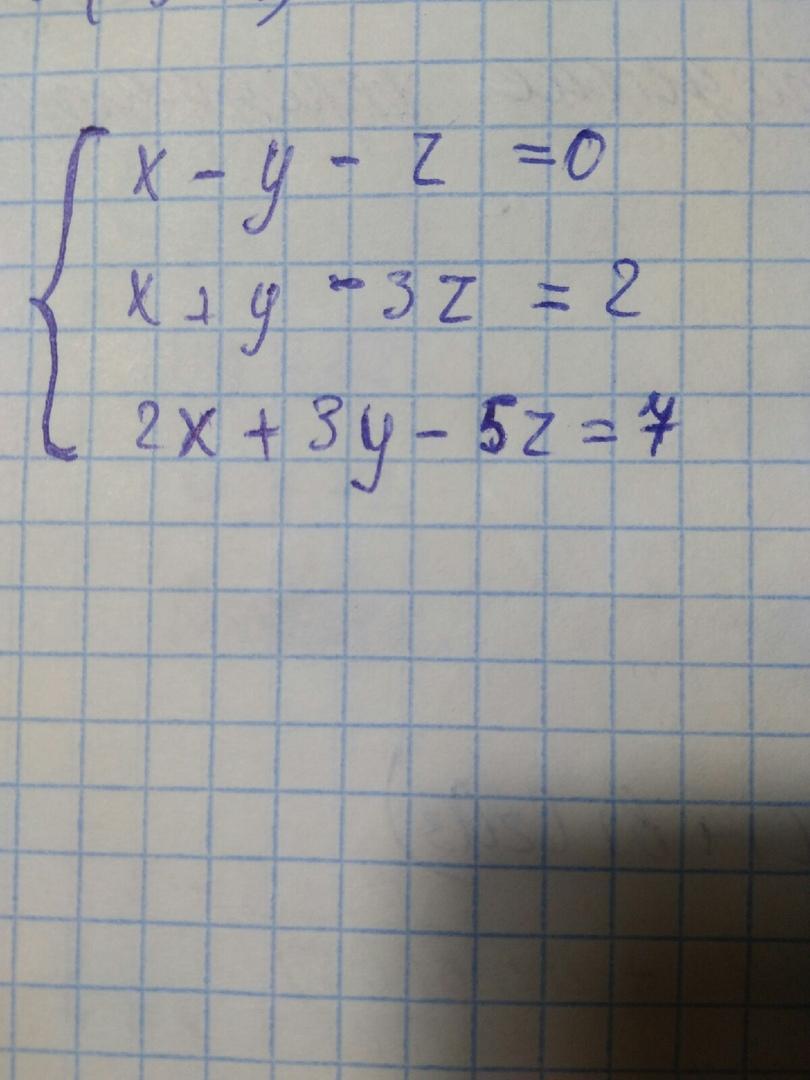 x - y - z = 0
x + y - 3z = 2
2x + 3y - 5z = 7